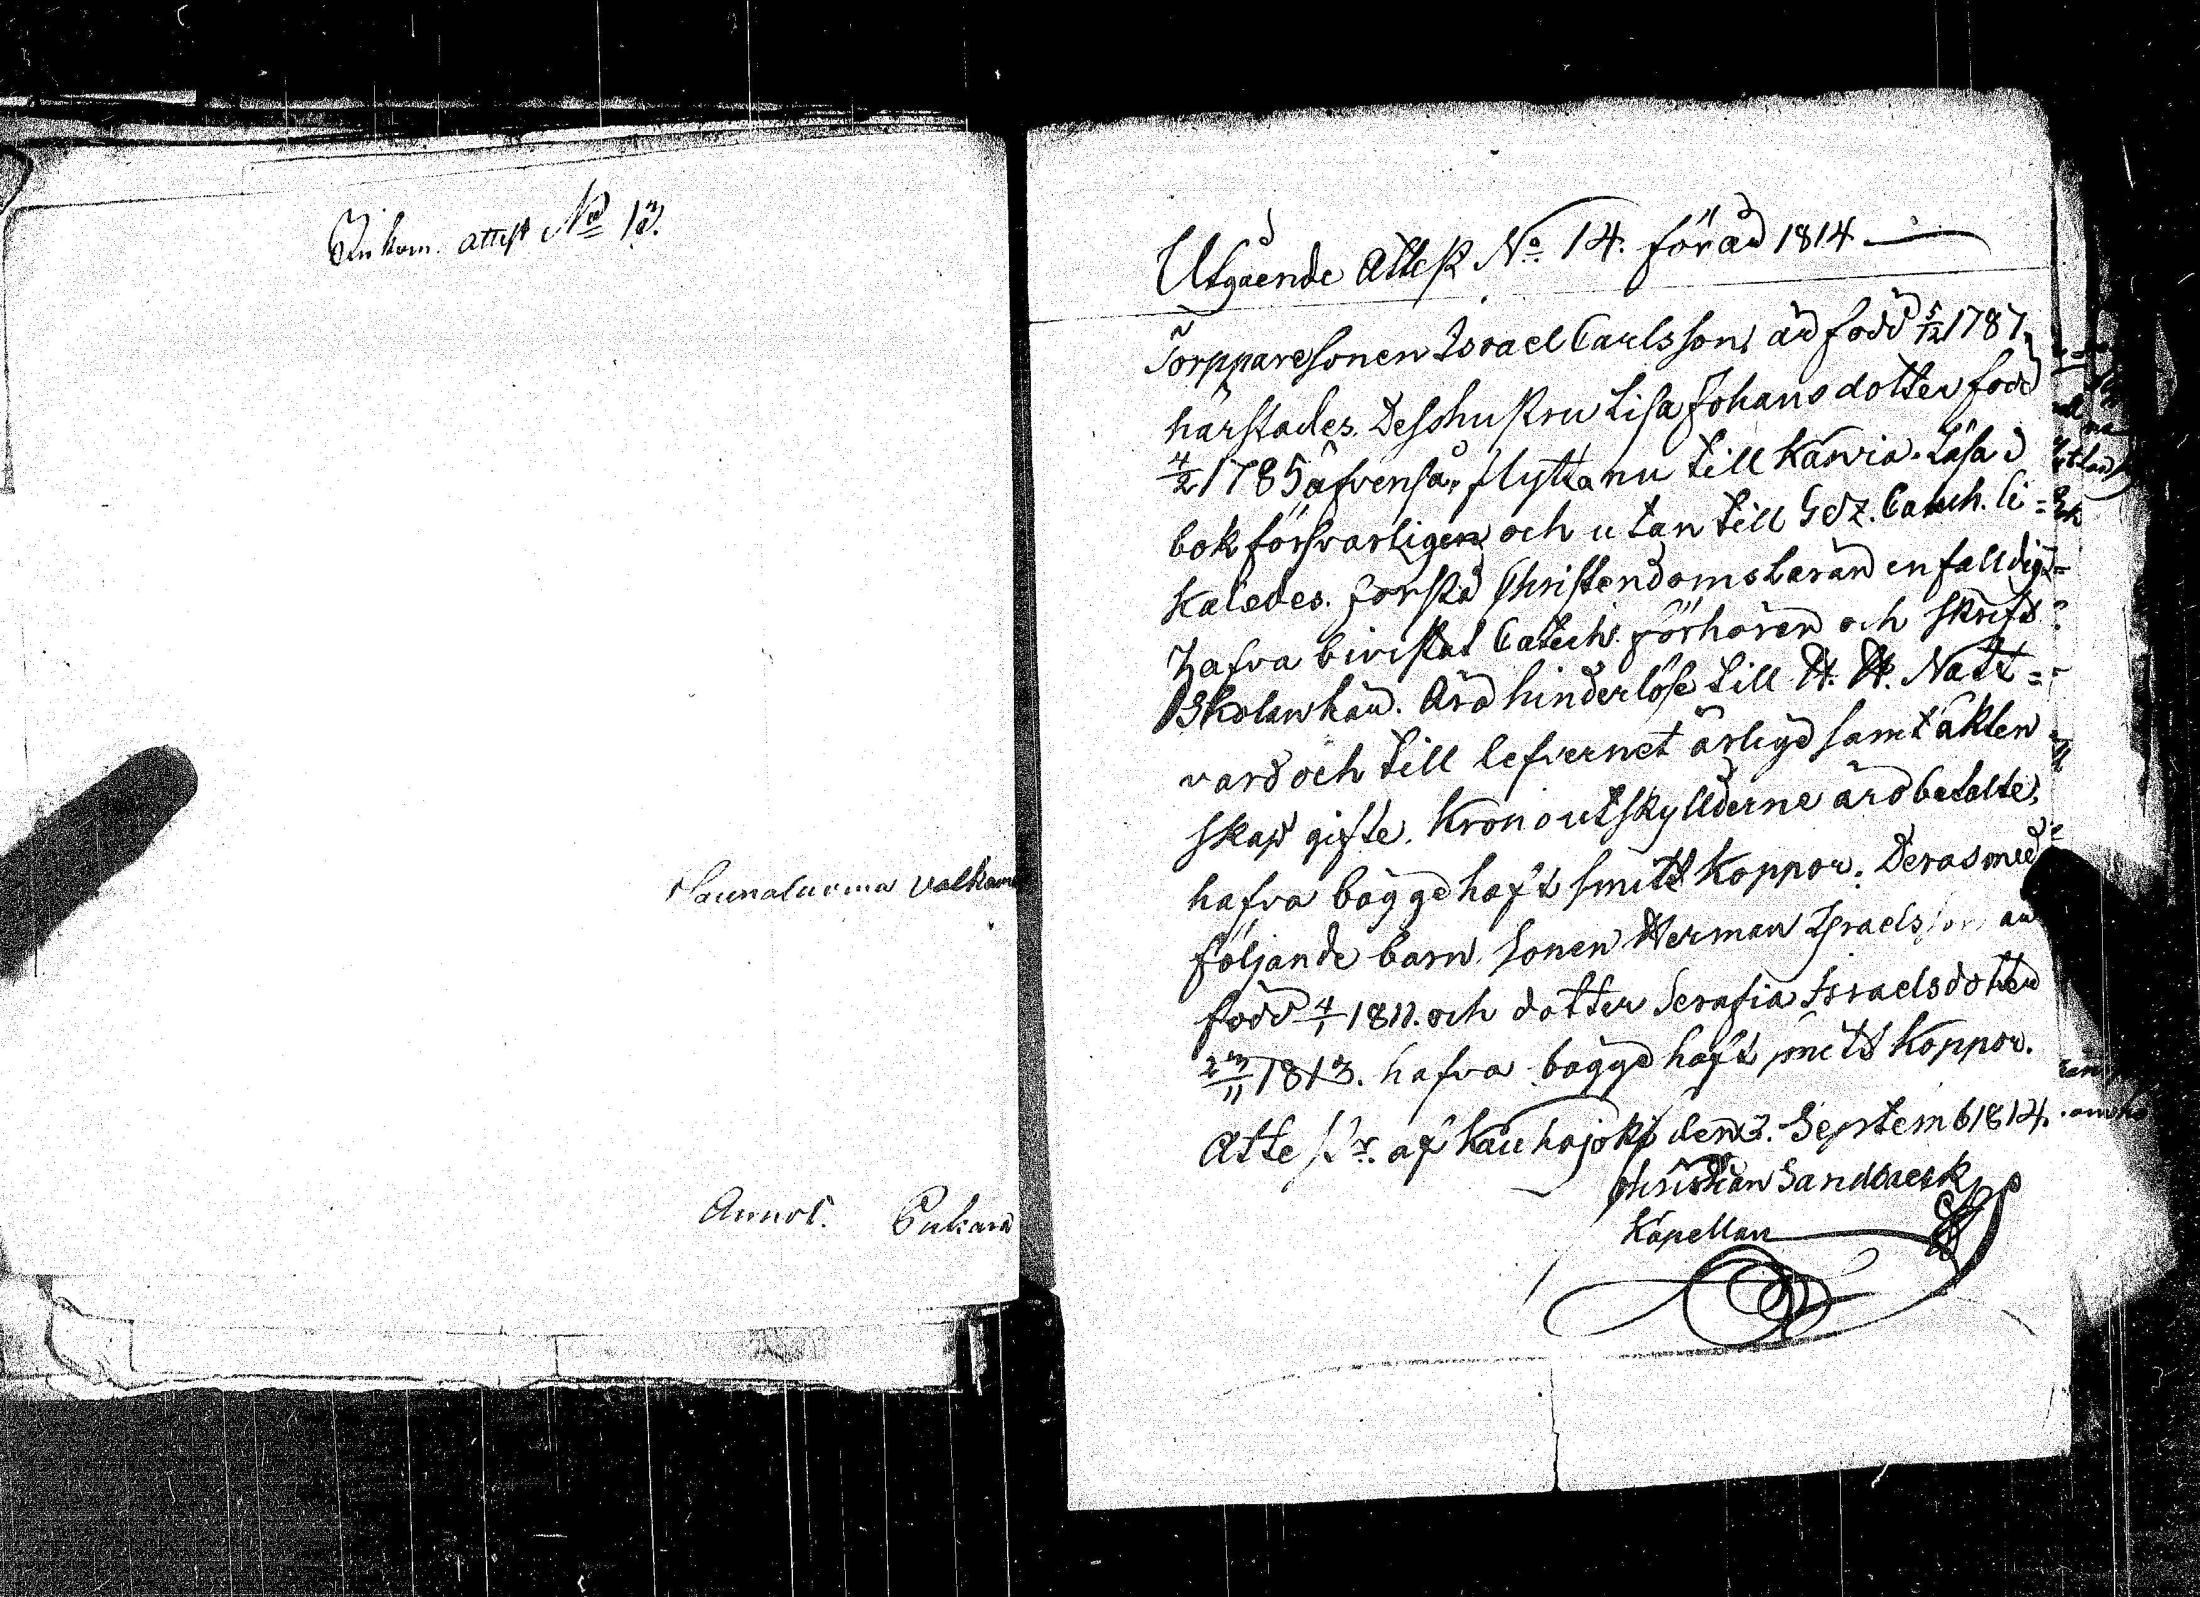 Inkom. attest No 13.
Saunaluoma valkama
Annot. Pukara
Utgående Attest No. 14. för åd 1814
Torpparesonen Israel Carlsson, är född 5/12 1787,
härstädes. Dess hustru Lisa Johansdotter född
4/2 1785 äfvenså, flytta nu till Karvia. Läsa i
bok försvarligen och utan till Gez. Catech. li=
kaledes. förstå Christendoms Läran enfalldig=
Hafva bivistat Catech. förhören och skrift
Skolan här. Äro hinderlöse till H. H. Natt=
vard och till lefvernet ärlige samt äkten
skap gifte. Kronoutskyllderne äro betalte,
hafva bägge haft smitt koppor. Deras med
följande barn, Sonen Herman Israelsson är
född 4/1 1811. och dotter Serafia Israelsdotter
23/11 1813. hafva bägge haft smitt koppor.
Attest:r. af Kauhajoki den 3. Septemb 1814.
Christian Sandbaeck
Kapellan